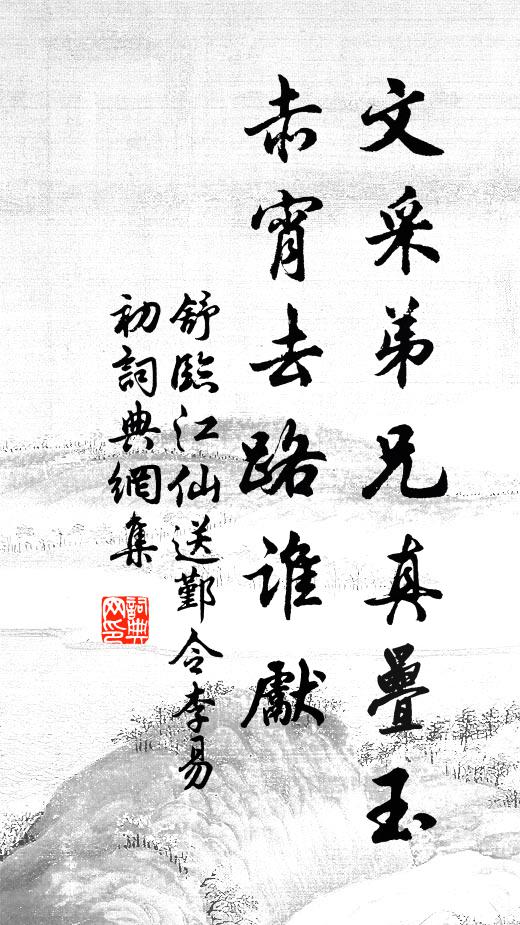 文采弟兄真疊玉
赤霄去路誰獻
舒臨江仙送鄞令李易
初詞典網集
詞典網印